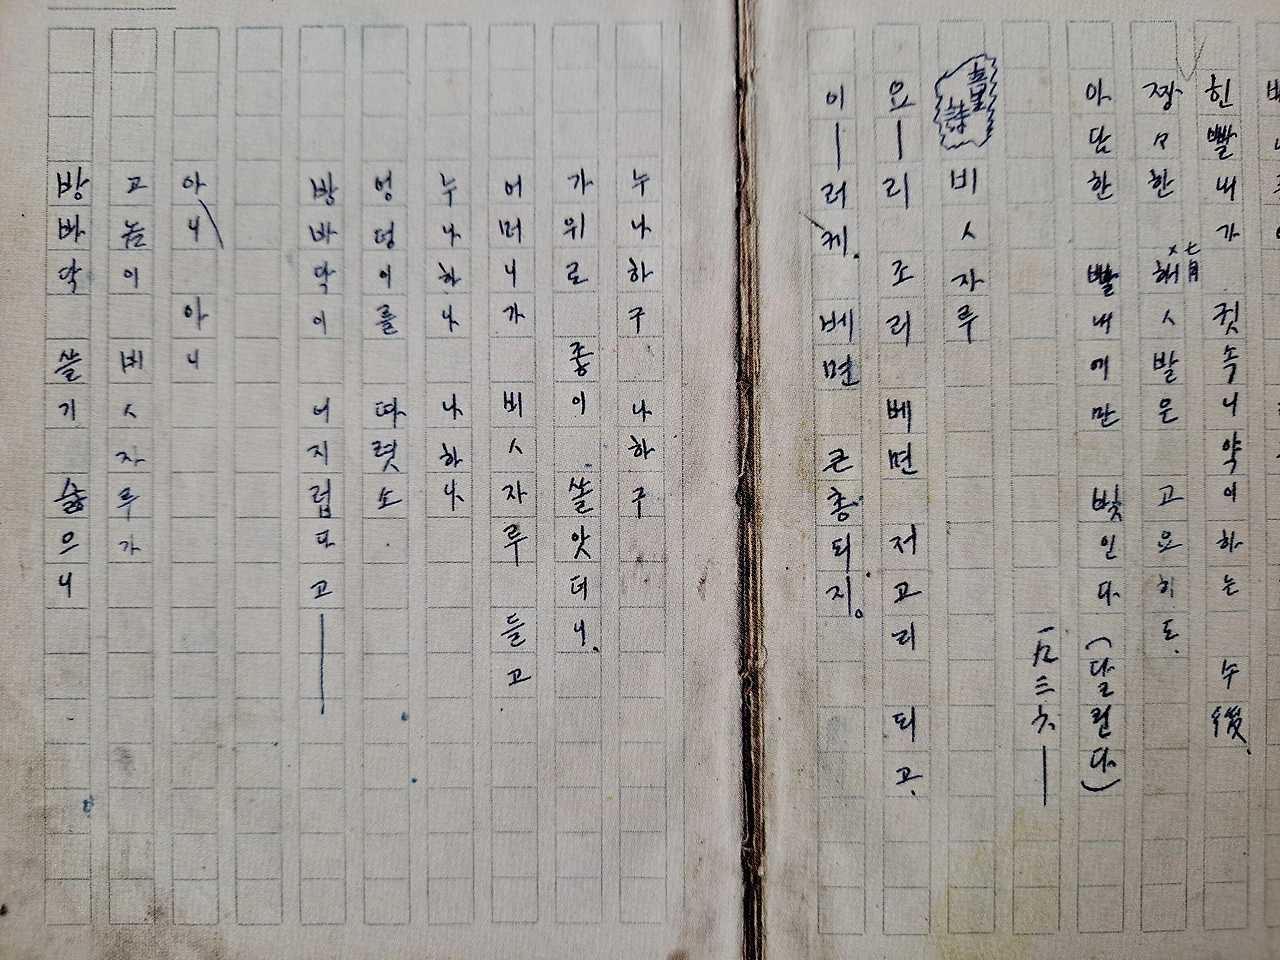 힌빨내가 귓속니약이하는 午後.
쨍々한 七月 해ㅅ발은 고요히도.
아담한 빨내에만 빛인다(달린다)
一九三六—
童詩 비ㅅ자루
요—리 조리 베면 저고리 되고.
이—러케. 베면 큰총되지。
누나하구 나하구
가위로 좋이 쏠앗더니.
어머니가 비ㅅ자루 들고
누나하나 나하나
엉덩이를 따렷소
방바닥이 어지럽다고—
아니 아니
고놈이 비ㅅ자루가
방바닥 쓸기 슳으니